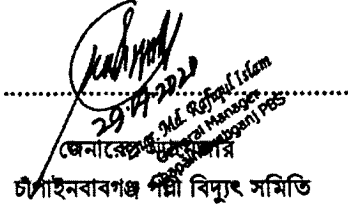 29-07-2020
Md. Rafiqul Islam
General Manager
Chapainawabganj PBS
জেনারেল ম্যানেজার
চাঁপাইনবাবগঞ্জ পল্লী বিদ্যুৎ সমিতি